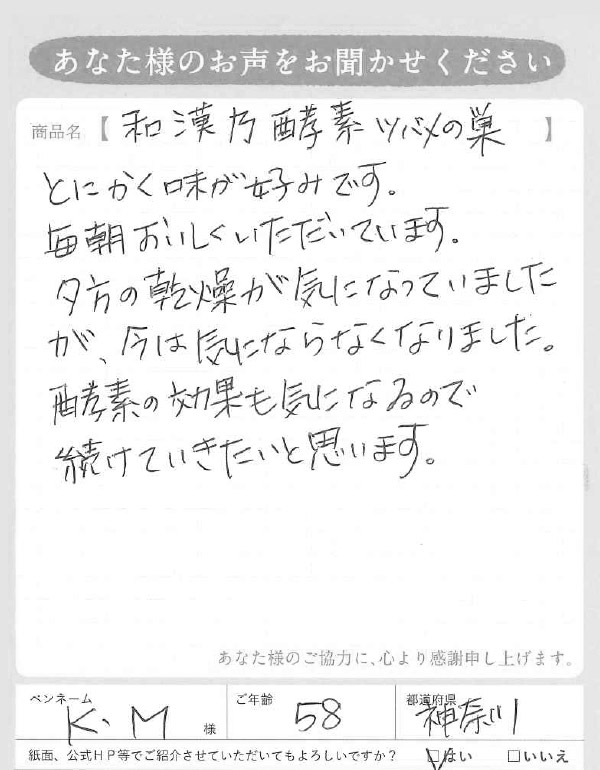 あなた様のお声をお聞かせください
商品名【和漢乃酵素ツバメの巣】
とにかく味が好みです。
毎朝おいしくいただいています。
夕方の乾燥が気になっていました
が、今は気にならなくなりました。
酵素の効果も気になるので
続けていきたいと思います。
あなた様のご協力に、心より感謝申し上げます。
ペンネーム K.M 様 ご年齢 58 都道府県 神奈川
紙面、公式HP等でご紹介させていただいてもよろしいですか? ☑はい □いいえ